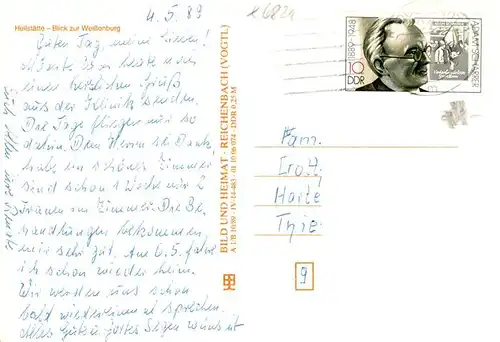 4.5.89
Heilstätte – Blick zur Weißenburg
Guten Tag, meine Lieben!
Möchte Euch heute
einen herzlichen Gruß
aus der Klinik senden.
Die Tage fliegen nur so
dahin. Dem Herrn sei Dank,
habe ein schönes Zimmer
sind schon 1 Woche nur 2
Frauen im Zimmer. Die Be-
handlungen bekommen
mir sehr gut. Am 6.5. fahre
ich schon wieder heim.
Wir werden uns schon
bald wiedersehen u. sprechen.
Alles Gute u. Gottes Segen wünscht
BILD UND HEIMAT · REICHENBACH (VOGTL)
A 1/B 16/89 · IV-14-483 · 01 10 06 074 · DDR 0,25 M
1889-1988
10
DDR
Fam.
9